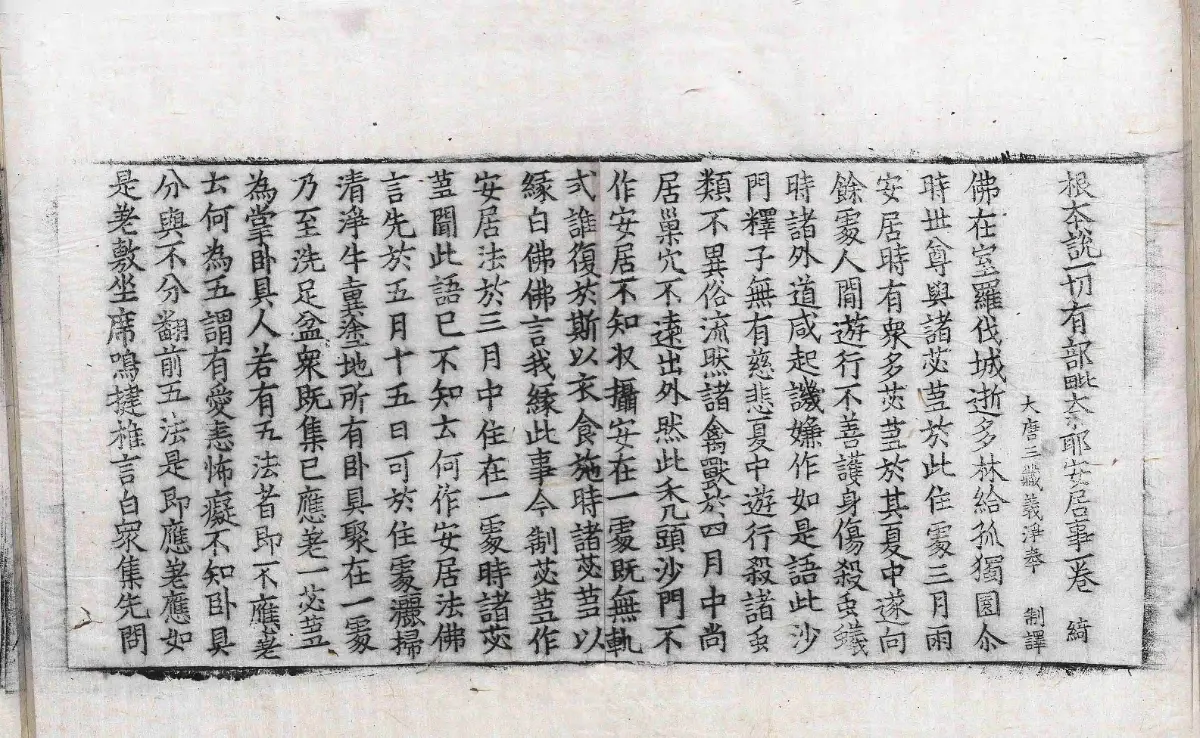 根夲說一切有部毗奈耶安居事一卷 綺
大唐三藏義淨奉 制譯
佛在室羅伐城逝多林給孤獨園尒
時世尊與諸苾芻於此住處三月雨
安居時有衆多苾芻於其夏中遂向
餘處人間遊行不善護身傷殺虫蟻
時諸外道咸起譏嫌作如是語此沙
門釋子無有慈悲夏中遊行殺諸虫
類不異俗流然諸禽獸於四月中尚
居巢穴不遠出外然此禿頭沙門不
作安居不知収攝安在一處既無軌
式誰復於斯以衣食施時諸苾芻以
緣白佛佛言我緣此事今制苾芻作
安居法於三月中住在一處時諸苾
芻聞此語已不知云何作安居法佛
言先於五月十五日可於住處灑掃
清淨牛糞塗地所有卧具聚在一處
乃至洗足盆衆既集已應差一苾芻
為掌卧具人若有五法者即不應差
云何為五謂有愛恚怖癡不知卧具
分與不分翻前五法是即應差應如
是差敷坐席鳴揵椎言白衆集先問